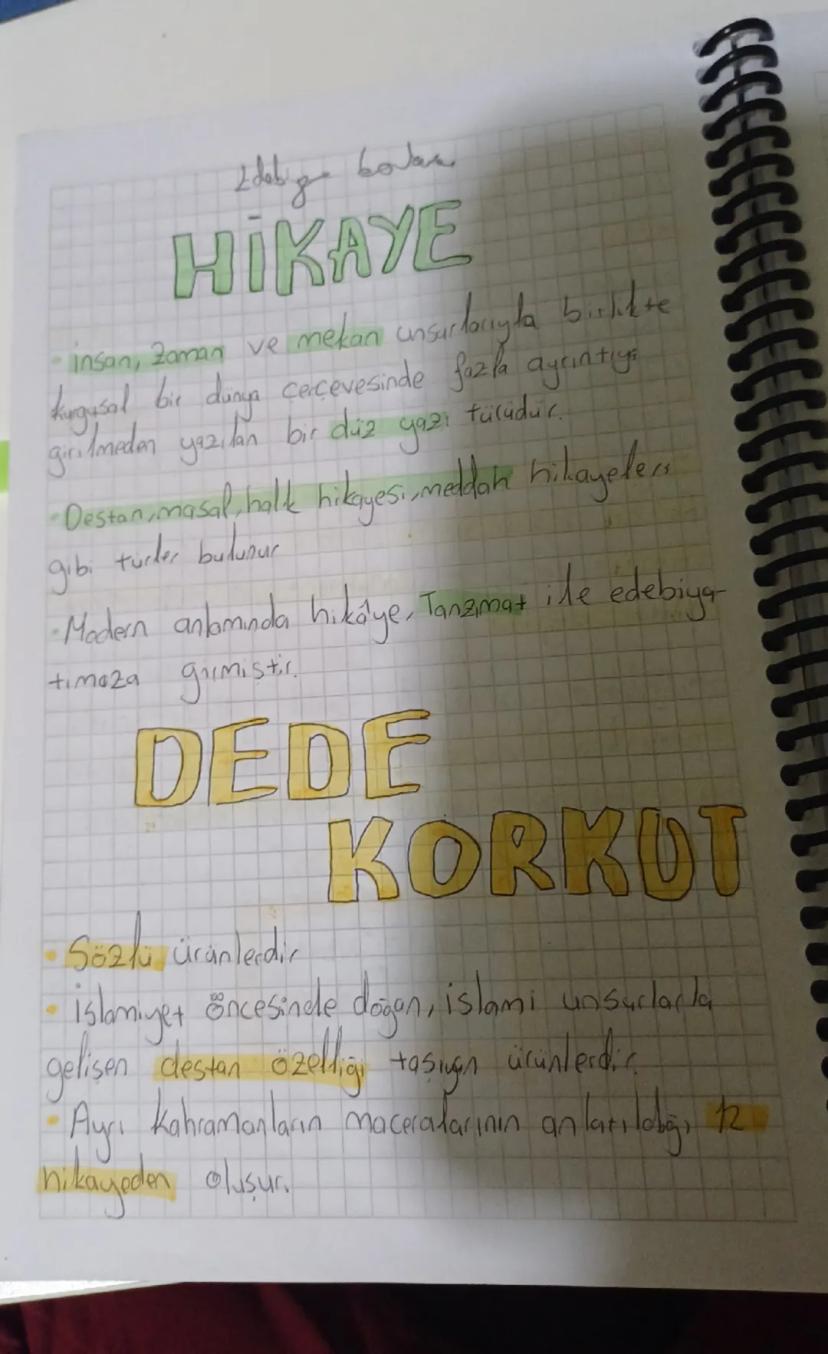 HİKAYE
· İnsan, zaman ve mekan unsurlarıyla birlikte
kurgusal bir dünya çerçevesinde fazla ayrıntıya
girilmeden yazılan bir düz yazı türüdür.
· Destan, masal, halk hikayesi, meddah hikayeleri
gibi türler bulunur
· Modern anlamında hikâye, Tanzimat ile edebiya-
tımıza girmiştir.
DEDE
KORKUT
· Sözlü ürünlerdir
· İslamiyet öncesinde doğan, islami unsurlarla
gelişen destan özelliği taşıyan ürünlerdir.
· Ayrı kahramanların maceralarının anlatıldığı 12
hikayeden oluşur.